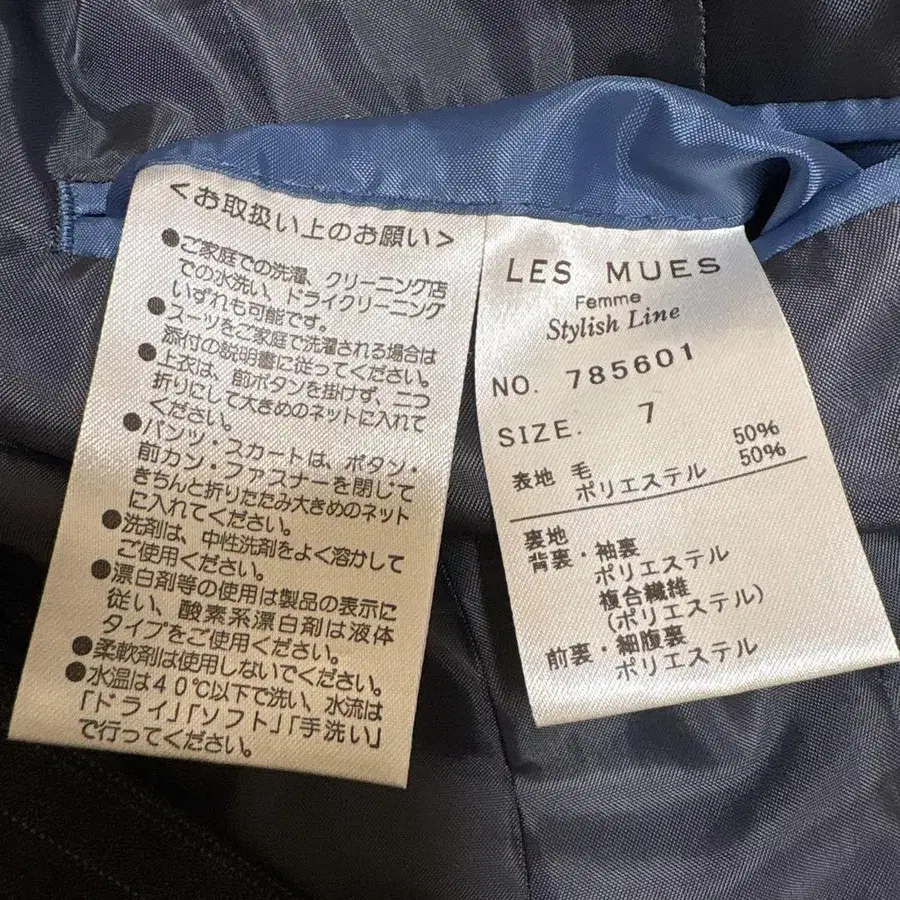 <お取扱い上のお願い>
●ご家庭での洗濯、クリーニング店
での水洗い、ドライクリーニング
いずれも可能です。
●スーツをご家庭で洗濯される場合は
添付の説明書に従ってください。
●上衣は、前ボタンを掛けず、二つ
折りにして大きめのネットに入れて
ください。
●パンツ・スカートは、ボタン・
前カン・ファスナーを閉じて
きちんと折りたたみ大きめのネット
に入れてください。
●洗剤は、中性洗剤をよく溶かして
ご使用ください。
●漂白剤等の使用は製品の表示に
従い、酸素系漂白剤は液体
タイプをご使用ください。
●柔軟剤は使用しないでください。
●水温は40℃以下で洗い、水流は
「ドライ」「ソフト」「手洗い」
で行ってください。
LES MUES
Femme
Stylish Line
NO. 785601
SIZE. 7
表地 毛 50%
ポリエステル 50%
裏地
背裏・袖裏
ポリエステル
複合繊維
(ポリエステル)
前裏・細腹裏
ポリエステル